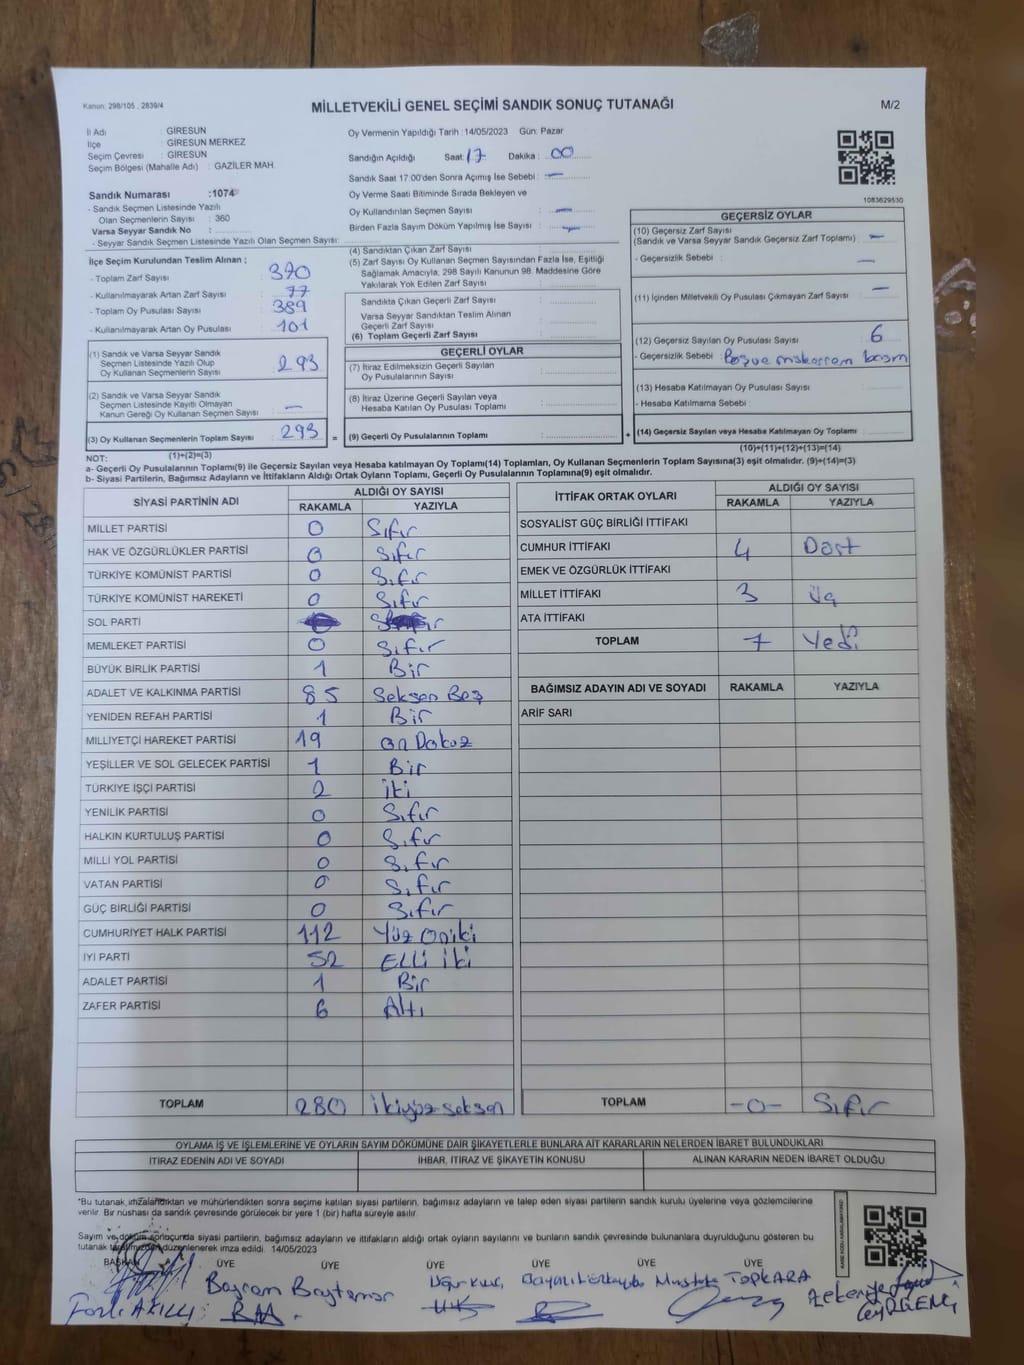 Kanun: 298/105 , 2839/4
MİLLETVEKİLİ GENEL SEÇİMİ SANDIK SONUÇ TUTANAĞI
M/2
İl Adı : GİRESUN
İlçe : GİRESUN MERKEZ
Seçim Çevresi : GİRESUN
Seçim Bölgesi (Mahalle Adı) : GAZİLER MAH.
Sandık Numarası :1074
- Sandık Seçmen Listesinde Yazılı
Olan Seçmenlerin Sayısı : 360
Varsa Seyyar Sandık No :
- Seyyar Sandık Seçmen Listesinde Yazılı Olan Seçmen Sayısı:
Oy Vermenin Yapıldığı Tarih :14/05/2023 Gün: Pazar
Sandığın Açıldığı Saat: 17 Dakika : 00
Sandık Saat 17:00'den Sonra Açımış İse Sebebi : —
Oy Verme Saati Bitiminde Sırada Bekleyen ve
Oy Kullandırılan Seçmen Sayısı : —
Birden Fazla Sayım Döküm Yapılmış İse Sayısı : —
1083629530
İlçe Seçim Kurulundan Teslim Alınan ;
- Toplam Zarf Sayısı : 370
- Kullanılmayarak Artan Zarf Sayısı : 77
- Toplam Oy Pusulası Sayısı : 389
- Kullanılmayarak Artan Oy Pusulası : 101
(1) Sandık ve Varsa Seyyar Sandık
Seçmen Listesinde Yazılı Olup
Oy Kullanan Seçmenlerin Sayısı : 293
(2) Sandık ve Varsa Seyyar Sandık
Seçmen Listesinde Kayıtlı Olmayan
Kanun Gereği Oy Kullanan Seçmen Sayısı : —
(3) Oy Kullanan Seçmenlerin Toplam Sayısı : 293 =
(1)+(2)=(3)
(4) Sandıktan Çıkan Zarf Sayısı :
(5) Zarf Sayısı Oy Kullanan Seçmen Sayısından Fazla İse, Eşitliği
Sağlamak Amacıyla, 298 Sayılı Kanunun 98. Maddesine Göre
Yakılarak Yok Edilen Zarf Sayısı :
Sandıkta Çıkan Geçerli Zarf Sayısı :
Varsa Seyyar Sandıktan Teslim Alınan
Geçerli Zarf Sayısı :
(6) Toplam Geçerli Zarf Sayısı :
GEÇERLİ OYLAR
(7) İtiraz Edilmeksizin Geçerli Sayılan
Oy Pusulalarının Sayısı :
(8) İtiraz Üzerine Geçerli Sayılan veya
Hesaba Katılan Oy Pusulası Toplamı :
(9) Geçerli Oy Pusulalarının Toplamı : +
GEÇERSİZ OYLAR
(10) Geçersiz Zarf Sayısı
(Sandık ve Varsa Seyyar Sandık Geçersiz Zarf Toplamı) : —
- Geçersizlik Sebebi : —
(11) İçinden Milletvekili Oy Pusulası Çıkmayan Zarf Sayısı : —
(12) Geçersiz Sayılan Oy Pusulası Sayısı : 6
- Geçersizlik Sebebi : Boş ve mükerrem basım
(13) Hesaba Katılmayan Oy Pusulası Sayısı :
- Hesaba Katılmama Sebebi :
(14) Geçersiz Sayılan veya Hesaba Katılmayan Oy Toplamı :
(10)+(11)+(12)+(13)=(14)
NOT:
a- Geçerli Oy Pusulalarının Toplamı(9) ile Geçersiz Sayılan veya Hesaba katılmayan Oy Toplamı(14) Toplamları, Oy Kullanan Seçmenlerin Toplam Sayısına(3) eşit olmalıdır. (9)+(14)=(3)
b- Siyasi Partilerin, Bağımsız Adayların ve İttifakların Aldığı Ortak Oyların Toplamı, Geçerli Oy Pusulalarının Toplamına(9) eşit olmalıdır.
SİYASİ PARTİNİN ADI ALDIĞI OY SAYISI
RAKAMLA YAZIYLA
MİLLET PARTİSİ 0 Sıfır
HAK VE ÖZGÜRLÜKLER PARTİSİ 0 Sıfır
TÜRKİYE KOMÜNİST PARTİSİ 0 Sıfır
TÜRKİYE KOMÜNİST HAREKETİ 0 Sıfır
SOL PARTİ
MEMLEKET PARTİSİ 0 Sıfır
BÜYÜK BİRLİK PARTİSİ 1 Bir
ADALET VE KALKINMA PARTİSİ 85 Seksen Beş
YENİDEN REFAH PARTİSİ 1 Bir
MİLLİYETÇİ HAREKET PARTİSİ 19 on Dokuz
YEŞİLLER VE SOL GELECEK PARTİSİ 1 Bir
TÜRKİYE İŞÇİ PARTİSİ 2 iki
YENİLİK PARTİSİ 0 Sıfır
HALKIN KURTULUŞ PARTİSİ 0 Sıfır
MİLLİ YOL PARTİSİ 0 Sıfır
VATAN PARTİSİ 0 Sıfır
GÜÇ BİRLİĞİ PARTİSİ 0 Sıfır
CUMHURİYET HALK PARTİSİ 112 Yüz Oniki
İYİ PARTİ 52 ELLi iki
ADALET PARTİSİ 1 Bir
ZAFER PARTİSİ 6 Altı
TOPLAM 280 ikiyüz seksen
İTTİFAK ORTAK OYLARI ALDIĞI OY SAYISI
RAKAMLA YAZIYLA
SOSYALİST GÜÇ BİRLİĞİ İTTİFAKI
CUMHUR İTTİFAKI 4 Dört
EMEK VE ÖZGÜRLÜK İTTİFAKI
MİLLET İTTİFAKI 3 Üç
ATA İTTİFAKI
TOPLAM 7 Yedi
BAĞIMSIZ ADAYIN ADI VE SOYADI RAKAMLA YAZIYLA
ARİF SARI
TOPLAM -0- Sıfır
OYLAMA İŞ VE İŞLEMLERİNE VE OYLARIN SAYIM DÖKÜMÜNE DAİR ŞİKAYETLERLE BUNLARA AİT KARARLARIN NELERDEN İBARET BULUNDUKLARI
İTİRAZ EDENİN ADI VE SOYADI İHBAR, İTİRAZ VE ŞİKAYETİN KONUSU ALINAN KARARIN NEDEN İBARET OLDUĞU
*Bu tutanak imzalandıktan ve mühürlendikten sonra seçime katılan siyasi partilerin, bağımsız adayların ve talep eden siyasi partilerin sandık kurulu üyelerine veya gözlemcilerine
verilir. Bir nüshası da sandık çevresinde görülecek bir yere 1 (bir) hafta süreyle asılır.
Sayım ve döküm sonucunda siyasi partilerin, bağımsız adayların ve ittifakların aldığı ortak oyların sayılarını ve bunların sandık çevresinde bulunanlara duyrulduğunu gösteren bu
tutanak tarafımızdan düzenlenerek imza edildi. 14/05/2023
BAŞKAN ÜYE ÜYE ÜYE ÜYE ÜYE ÜYE
Bayram Baytemar Uğur Kılıç Mustafa TOPKARA